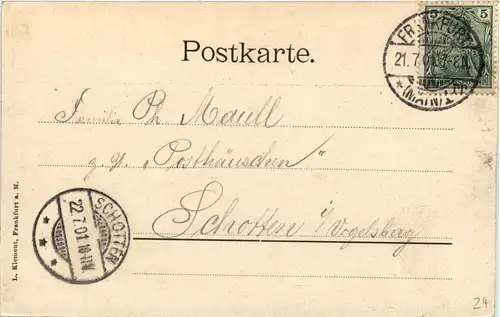 Postkarte.
5
FRANKFURT
21.7.01. 7-8N.
*(MAIN)1.
Familie Ph Maull
z. Zt. „Posthäuschen"
Schotten i/Vogelsberg
SCHOTTEN
22.7.01. 10-11V.
* * *
L. Klement, Frankfurt a. M.
24